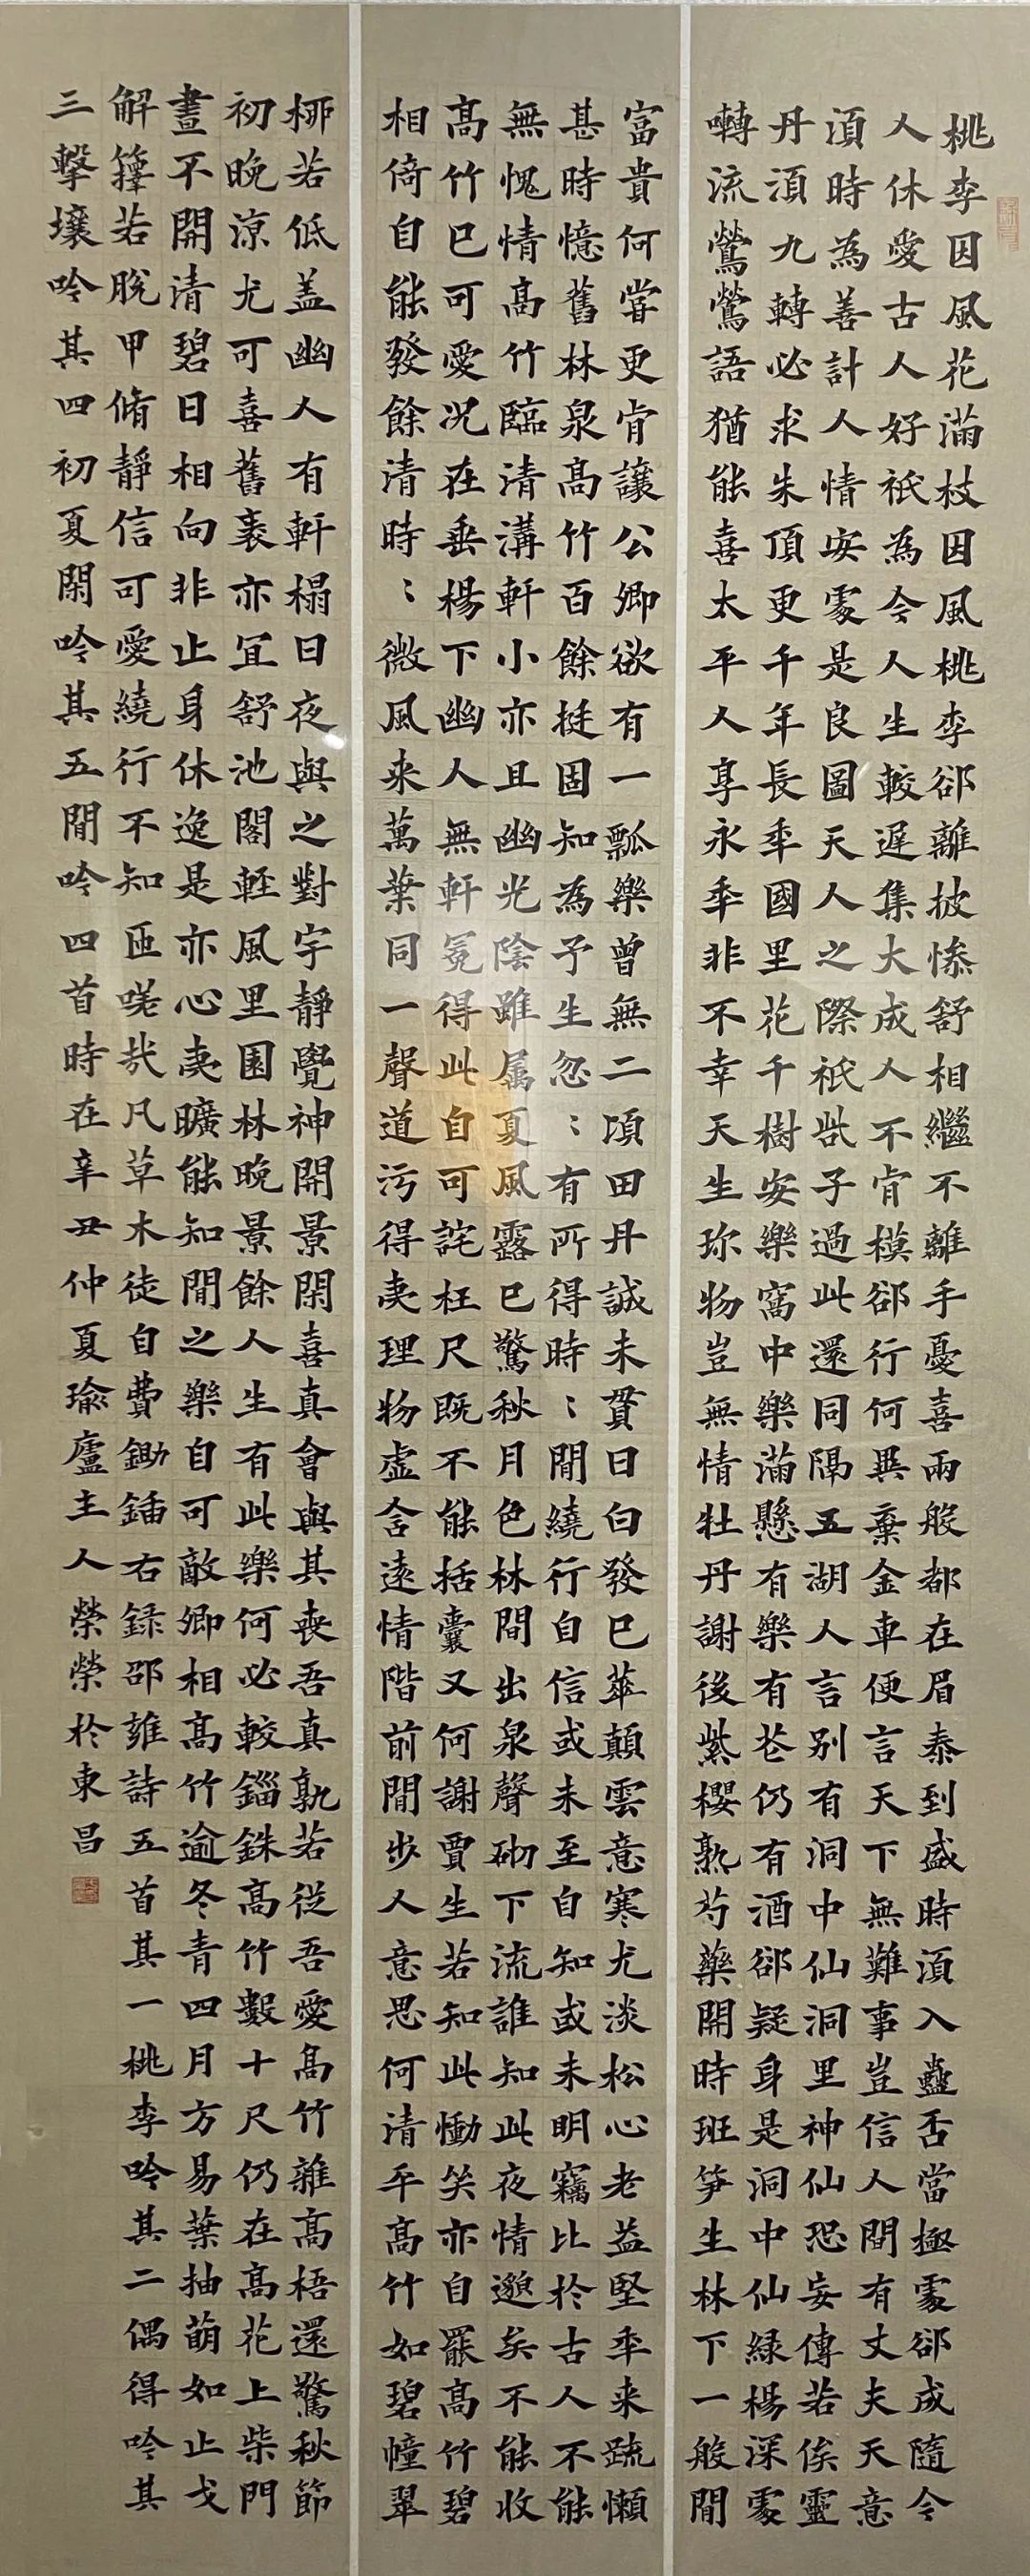 桃李因風花滿枝因風桃李卻離披慘舒相繼不離手憂喜兩般都在眉泰到盛時須入蠱否當極處卻成隨今
人休愛古人好祇為今人生較遲集大成人不肯模卻行何異棄金車便言天下無難事豈信人間有丈夫天意
須時為善計人情安處是良圖天人之際祇此子過此還同隔五湖人言別有洞中仙洞里神仙恐妄傳若俟靈
丹須九轉必求朱頂更千年長年國里花千樹安樂窩中樂滿懸有樂有花仍有酒卻疑身是洞中仙綠楊深處
囀流鶯鶯語猶能喜太平人享永年非不幸天生珎物豈無情牡丹謝後紫櫻熟芍藥開時班笋生林下一般閒
富貴何嘗更肯讓公卿欲有一瓢樂曾無二頃田丹誠未貫日白發已華顛雲意寒尤淡松心老益堅年来踈懶
甚時憶舊林泉高竹百餘挺固知為予生忽〻有所得時〻閒繞行自信或未至自知或未明竊比於古人不能
無愧情高竹臨清溝軒小亦且幽光陰雖属夏風露已驚秋月色林間出泉聲砌下流誰知此夜情邈矣不能收
高竹已可愛况在垂楊下幽人無軒冕得此自可詫枉尺既不能括囊又何謝賈生若知此慟笑亦自罷高竹碧
相倚自能發餘清時〻微風来萬葉同一聲道污得夷理物虛含遠情階前閒步人意思何清平高竹如碧幢翠
柳若低盖幽人有軒榻日夜與之對宇静覺神開景閑喜真會與其喪吾真孰若從吾愛高竹雜高梧還驚秋節
初晚涼尤可喜舊裹亦宜舒池閣輕風里園林晚景餘人生有此樂何必較錙銖高竹數十尺仍在高花上柴門
晝不開清碧日相向非止身休逸是亦心夷曠能知閒之樂自可敵卿相高竹逾冬青四月方易葉抽萌如止戈
解籜若脫甲脩静信可愛繞行不知匝嗟㢤凡草木徒自費鋤鍤右録邵雍詩五首其一桃李吟其二偶得吟其
三擊壤吟其四初夏閑吟其五閒吟四首時在辛丑仲夏瑜廬主人榮榮於東昌